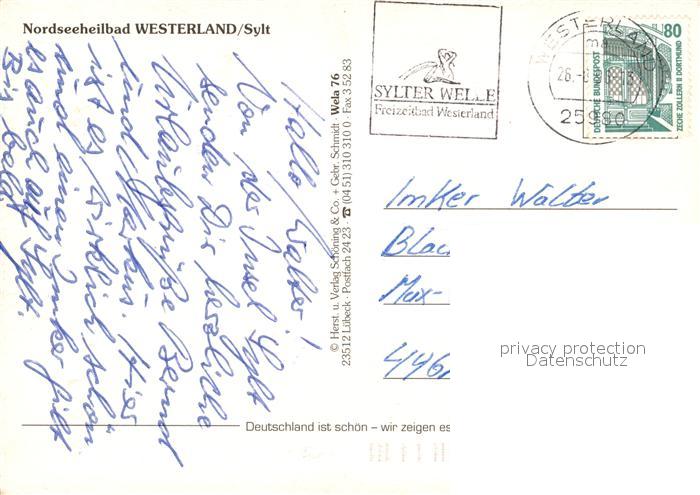 Nordseeheilbad WESTERLAND/Sylt
Hallo Walter!
Von der Insel Sylt
senden Dir herzliche
Urlaubsgrüße Bernd
und Markus. Hier
ist es wirklich schön
und einen Imker gibt
es auch auf Sylt.
Bis bald
© Herst. u. Verlag Schöning & Co. + Gebr. Schmidt · Wela 76
23512 Lübeck · Postfach 24 23 · ☎ (04 51) 310 310 0 · Fax 3 52 83
SYLTER WELLE
Freizeitbad Westerland
WESTERLAND
26.-8
25980
80
DEUTSCHE BUNDESPOST
ZECHE ZOLLERN II DORTMUND
Imker Walter
Max-
446
privacy protection
Datenschutz
Deutschland ist schön – wir zeigen es